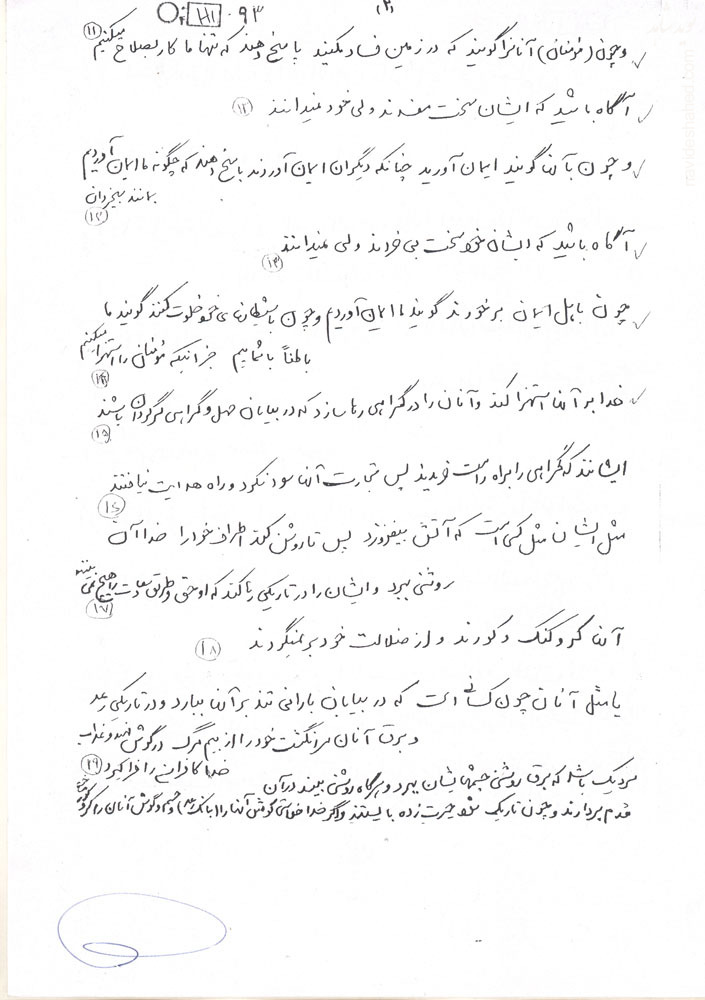 (۲)
۹۳
و چون (مؤمنان) آنانرا گویند که در زمین فساد مکنید پاسخ دهند که تنها ما کار بصلاح میکنیم (۱۱)
آگاه باشید که ایشان سخت مفسدند ولی خود نمیدانند (۱۲)
و چون بآنها گویند ایمان آورید چنانکه دیگران ایمان آوردند پاسخ دهند که چگونه ما ایمان آوریم
بمانند بیخردان
(۱۳)
آگاه باشید که ایشان خود سخت بی خردند ولی نمیدانند
(۱۳)
چون باهل ایمان برخورند گویند ما ایمان آوردیم و چون با شیطانهای خود خلوت کنند گویند ما
باطناً با شماییم جز اینکه مؤمنان را استهزا میکنیم
(۱۴)
خدا بر آنها استهزا کند و آنان را در گمراهی رها سازد که در بیابان جهل و گمراهی سرگردان باشند
(۱۵)
ایشانند که گمراهی را براه راست خریدند پس تجارت آنها سود نکرد و راه هدایت نیافتند
(۱۶)
مثل ایشان مثل کسی است که آتشی بیفروزد پس تا روشن کند اطراف خود را خدا آن
روشنی ببرد و ایشان را در تاریکی رها کند که راه حق و طریق سعادت را هیچ نمی بینند
(۱۷)
آنها کر و گنگ و کورند و از ضلالت خود بر نمیگردند (۱۸)
یا مثل آنان چون کسانی است که در بیابان بارانی تند بر آنها ببارد و در تاریکی رعد
و برق آنان سر انگشت خود را از بیم مرگ در گوش نهند و عذاب
خدا کافران را فرا گیرد (۱۹)
نزدیک باشد که برق روشنی چشمهایشان ببرد و هر گاه روشنی بینند در آن
قدم بردارند و چون تاریک شود حیرت زده بایستند و اگر خدا خواستی گوش آنها را (ببانگ رعد) و چشم و گوش آنان را کر و کور